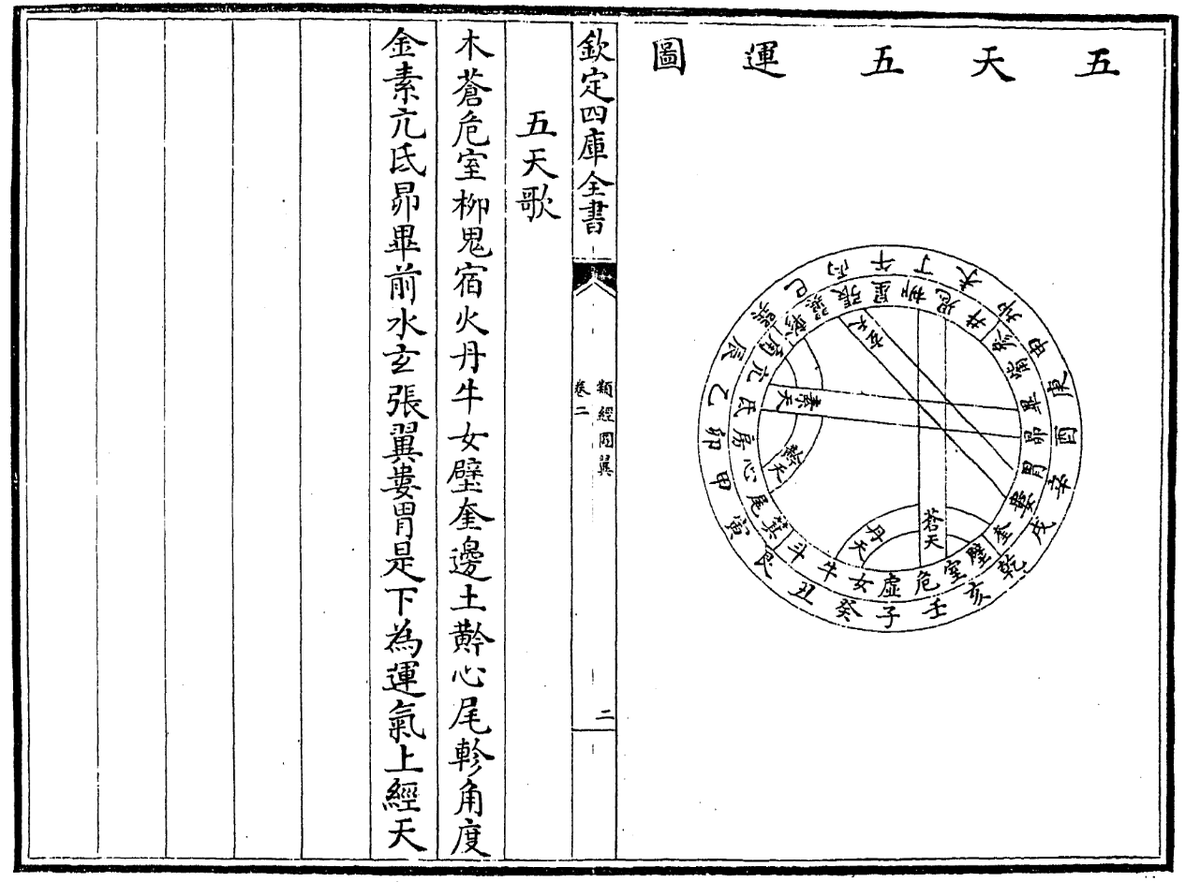 五天五運圖
午丁未坤申庚酉辛戌乾亥壬子癸丑艮寅甲卯乙辰巽巳丙
角亢氐房心尾箕斗牛女虛危室壁奎婁胃昴畢觜參井鬼柳星張翼軫
玄天
素天
黅天
丹天
蒼天
欽定四庫全書
類經圖翼
卷二
二
五天歌
木蒼危室柳鬼宿火丹牛女壁奎邊土黅心尾軫角度
金素亢氐昴畢前水玄張翼婁胃是下為運氣上經天